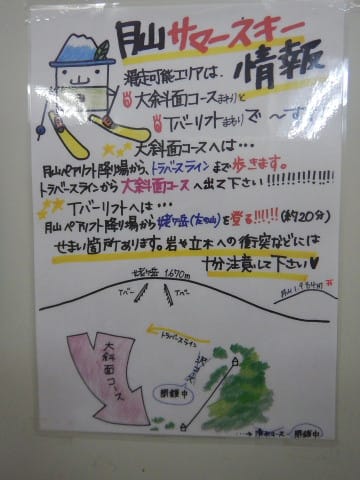 月山サマースキー
情報
滑走可能エリアは、
大斜面コースまわりと
Tバーリフトまわりで〜す
大斜面コースへは…
月山ペアリフト降り場から、トラバースラインまで歩きます。
トラバースラインから大斜面コースへ出て下さい!!!!!!!!!!!!
Tバーリフトへは…
月山ペアリフト降り場から姥ヶ岳(左の山)を登る!!!!!(約20分)
せまい箇所あります。岩や立木への衝突などには
十分注意して下さい♥
姥ヶ岳 1,670m
Tバー Tバー
月山 1,984m
トラバースライン
大斜面コース
沢コース
閉鎖中
閉鎖中